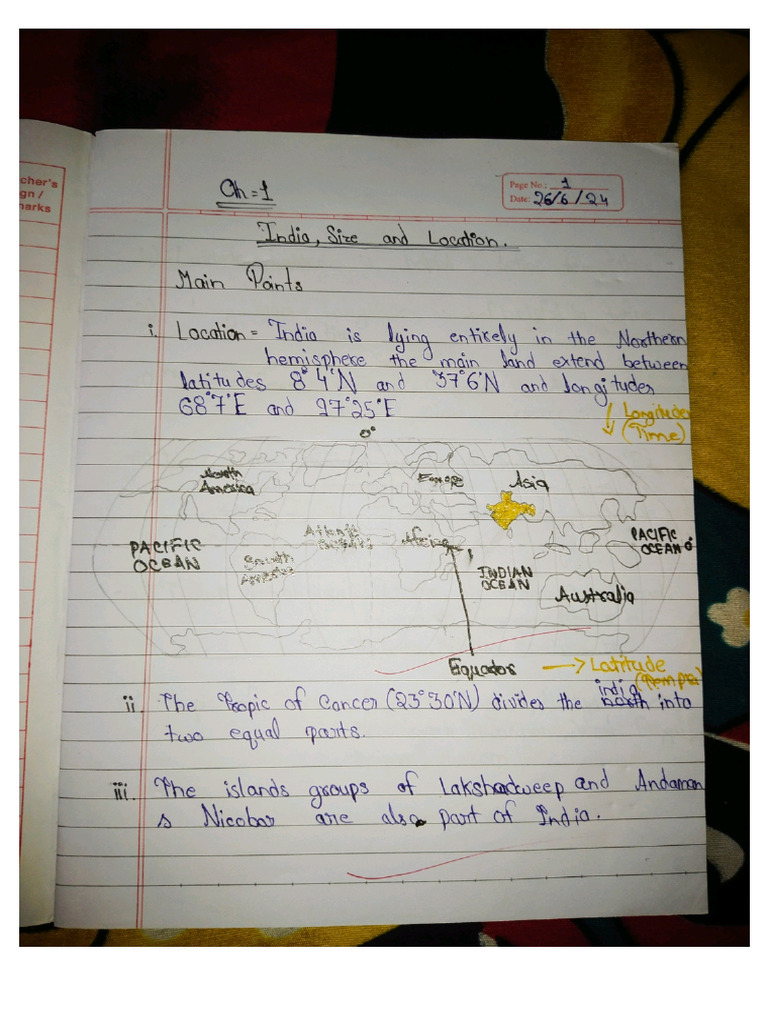 cher's
gn /
marks
Ch=1
Page No.: 1
Date: 26/6/24
India, Size and Location.
Main Points
i. Location = India is lying entirely in the Northern
hemisphere the main land extend between
latitudes 8°4'N and 37°6'N and longitudes
68°7'E and 97°25'E
Longitudes
(Time)
0°
North
America
Europe
Asia
Atlantic
Africa
PACIFIC
OCEAN
PACIFIC
OCEAN
South
America
INDIAN
OCEAN
Australia
Equador → Latitude
(Temp
ii. The Tropic of Cancer (23°30'N) divides the india into
two equal parts.
iii. The islands groups of Lakshadweep and Andaman
s Nicobar are also part of India.